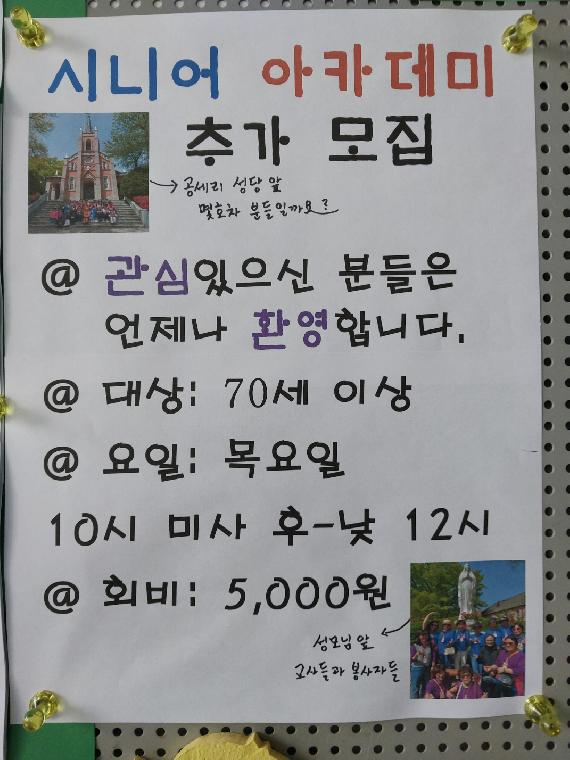 시니어 아카데미
추가 모집
공세리 성당 앞
몇호차 분들일까요?
@ 관심있으신 분들은
언제나 환영합니다.
@ 대상: 70세 이상
@ 요일: 목요일
10시 미사 후-낮 12시
@ 회비: 5,000원
성모님 앞
교사들과 봉사자들